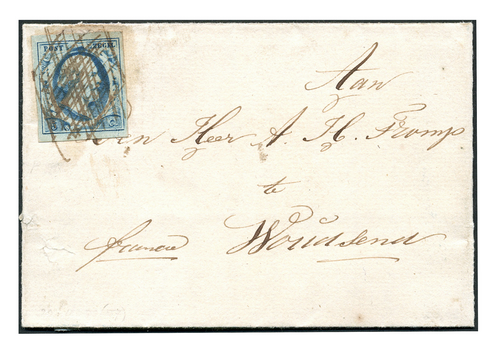 POST ZEGEL
Aan
den Heer A. H. Tromp
te
franco Woudsend